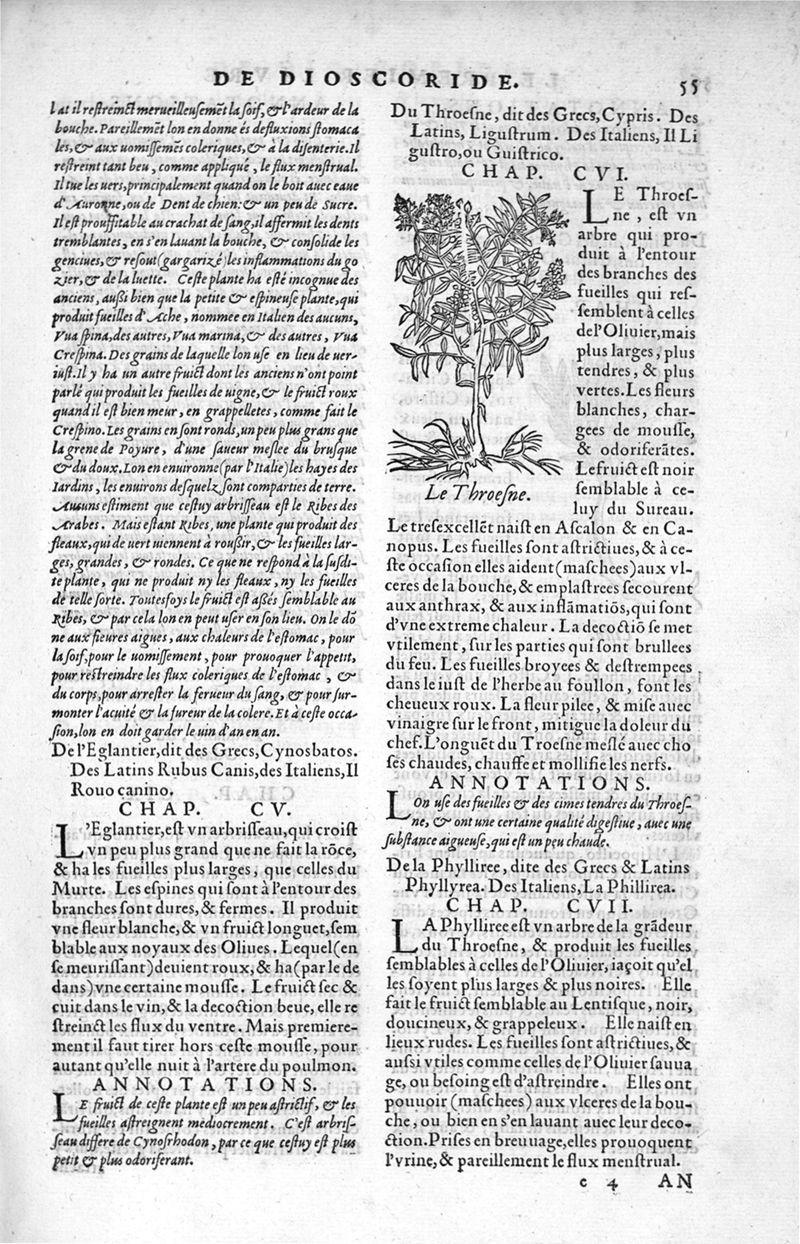 DE DIOSCORIDE. 55
lat il reſtreinct merueilleuſemēt la ſoif, & l'ardeur de la
bouche. Pareillemēt lon en donne és defluxions ſtomaca
les, & aux uomiſſemēs coleriques, & à la diſenterie. Il
reſtreint tant beu, comme appliqué, le flux menſtrual.
Il tue les uers, principalement quand on le boit auec eaue
d'Auronne, ou de Dent de chien: & un peu de Sucre.
Il eſt prouffitable au crachat de ſang, il affermit les dents
tremblantes, en s'en lauant la bouche, & conſolide les
genciues, & reſout (gargarizé) les inflammations du go
zier, & de la luette. Ceſte plante ha eſté incognue des
anciens, außi bien que la petite & eſpineuſe plante, qui
produit fueilles d'Ache, nommee en Italien des aucuns,
Vua ſpina, des autres, Vua marina, & des autres, Vua
Creſpina. Des grains de laquelle lon uſe en lieu de uer-
iuſt. Il y ha un autre fruict dont les anciens n'ont point
parlé qui produit les fueilles de uigne, & le fruict roux
quand il eſt bien meur, en grappelletes, comme fait le
Creſpino. Les grains en ſont ronds, un peu plus grans que
la grene de Poyure, d'une ſaueur meſlee du bruſque
& du doux. Lon en enuironne (par l'Italie) les hayes des
Iardins, les enuirons deſquelz ſont comparties de terre.
Aucuns eſtiment que ceſtuy arbriſſeau eſt le Ribes des
Arabes. Mais eſtant Ribes, une plante qui produit des
fleaux, qui de uert uiennent à rouſsir, & les fueilles lar-
ges, grandes, & rondes. Ce que ne reſpond à la ſuſdi-
te plante, qui ne produit ny les fleaux, ny les fueilles
de telle ſorte. Touteſoys le fruict eſt aßés ſemblable au
Ribes, & par cela lon en peut uſer en ſon lieu. On le dō
ne aux fieures aigues, aux chaleurs de l'eſtomac, pour
la ſoif, pour le uomiſſement, pour prouoquer l'appetit,
pour reſtreindre les flux coleriques de l'eſtomac, &
du corps, pour arreſter la ferueur du ſang, & pour ſur-
monter l'acuité & la fureur de la colere. Et à ceſte occa-
ſion, lon en doit garder le uin d'an en an.
De l'Eglantier, dit des Grecs, Cynosbatos.
Des Latins Rubus Canis, des Italiens, Il
Rouo canino.
CHAP. CV.
L'Eglantier, eſt vn arbriſſeau, qui croiſt
vn peu plus grand que ne fait la rōce,
& ha les fueilles plus larges, que celles du
Murte. Les eſpines qui ſont à l'entour des
branches ſont dures, & fermes. Il produit
vne fleur blanche, & vn fruict longuet, ſem
blable aux noyaux des Oliues. Lequel (en
ſe meuriſſant) deuient roux, & ha (par le de
dans) vne certaine mouſſe. Le fruict ſec &
cuit dans le vin, & la decoction beue, elle re
ſtreinct les flux du ventre. Mais premiere-
ment il faut tirer hors ceſte mouſſe, pour
autant qu'elle nuit à l'artere du poulmon.
ANNOTATIONS.
LE fruict de ceſte plante eſt un peu aſtrictif, & les
fueilles aſtreignent mediocrement. C'eſt arbriſ-
ſeau differe de Cynorhodon, par ce que ceſtuy eſt plus
petit & plus odoriferant.
Du Throeſne, dit des Grecs, Cypris. Des
Latins, Liguſtrum. Des Italiens, Il Li
guſtro, ou Guiſtrico.
CHAP. CVI.
LE Throeſ-
ne, eſt vn
arbre qui pro-
duit à l'entour
des branches des
fueilles qui reſ-
ſemblent à celles
de l'Oliuier, mais
plus larges, plus
tendres, & plus
vertes. Les fleurs
blanches, char-
gees de mouſſe,
& odoriferātes.
Le fruict eſt noir
ſemblable à ce-
luy du Sureau.
Le Throeſne.
Le treſexcellēt naiſt en Aſcalon & en Ca-
nopus. Les fueilles ſont aſtrictiues, & à ce-
ſte occaſion elles aident (maſchees) aux vl-
ceres de la bouche, & emplaſtrees ſecourent
aux anthrax, & aux inflāmatiōs, qui ſont
d'vne extreme chaleur. La decoctiō ſe met
vtilement, ſur les parties qui ſont brullees
du feu. Les fueilles broyees & deſtrempees
dans le iuſt de l'herbe au foullon, font les
cheueux roux. La fleur pilee, & miſe auec
vinaigre ſur le front, mitigue la doleur du
chef. L'onguēt du Troeſne meſlé auec cho
ſes chaudes, chauffe et mollifie les nerfs.
ANNOTATIONS.
LOn uſe des fueilles & des cimes tendres du Throeſ-
ne, & ont une certaine qualité digeſtiue, auec une
ſubſtance aigueuſe, qui eſt un peu chaude.
De la Phylliree, dite des Grecs & Latins
Phyllyrea. Des Italiens, La Phillirea.
CHAP. CVII.
LA Phylliree eſt vn arbre de la grādeur
du Throeſne, & produit les fueilles
ſemblables à celles de l'Oliuier, iaçoit qu'el
les ſoyent plus larges & plus noires. Elle
fait le fruict ſemblable au Lentiſque, noir,
doucineux, & grappeleux. Elle naiſt en
lieux rudes. Les fueilles ſont aſtrictiues, &
auſsi vtiles comme celles de l'Oliuier ſauua
ge, ou beſoing eſt d'aſtreindre. Elles ont
pouuoir (maſchees) aux vlceres de la bou-
che, ou bien en s'en lauant auec leur deco-
ction. Priſes en breuuage, elles prouoquent
l'vrine, & pareillement le flux menſtrual.
c 4 AN